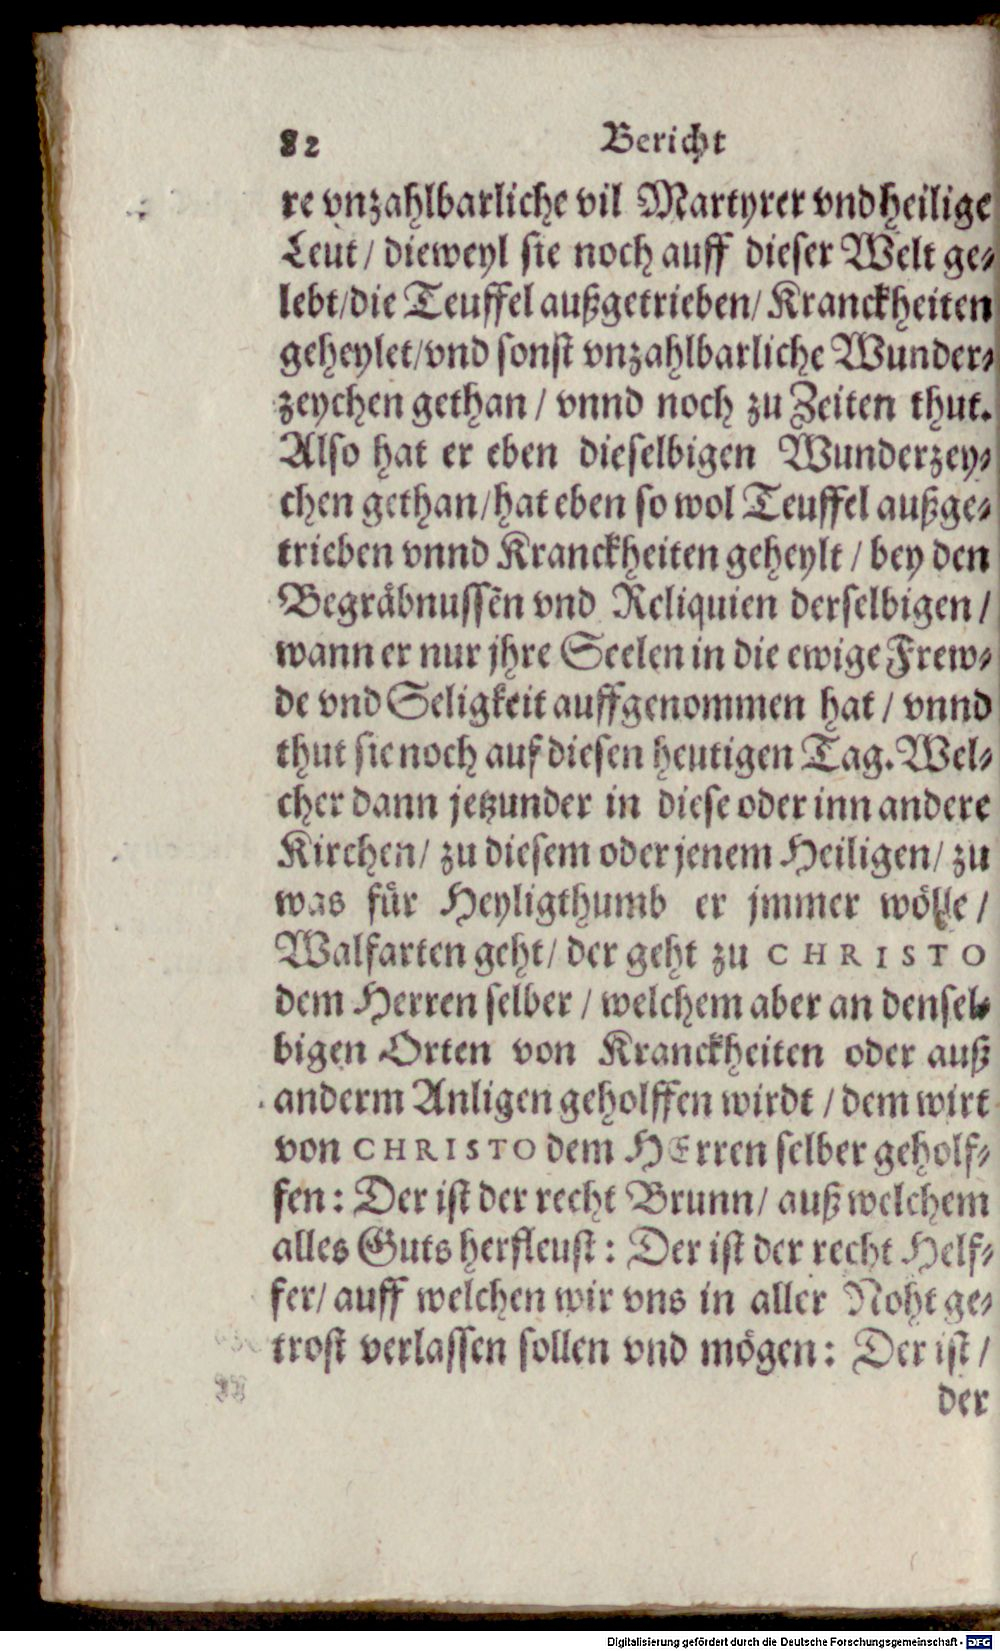 82 Bericht
re vnzahlbarliche vil Martyrer vnd heilige
Leut / dieweyl sie noch auff dieser Welt ge⸗
lebt / die Teuffel außgetrieben / Kranckheiten
geheylet / vnd sonst vnzahlbarliche Wunder⸗
zeychen gethan / vnnd noch zu Zeiten thut.
Also hat er eben dieselbigen Wunderzey⸗
chen gethan / hat eben so wol Teuffel außge⸗
trieben vnnd Kranckheiten geheylt / bey den
Begräbnussẽn vnd Reliquien derselbigen /
wann er nur jhre Seelen in die ewige Frew⸗
de vnd Seligkeit auffgenommen hat / vnnd
thut sie noch auf diesen heutigen Tag. Wel⸗
cher dann jetzunder in diese oder inn andere
Kirchen / zu diesem oder jenem Heiligen / zu
was für Heyligthumb er jmmer wölle /
Walfarten geht / der geht zu CHRISTO
dem Herren selber / welchem aber an densel⸗
bigen Orten von Kranckheiten oder auß
anderm Anligen geholffen wirdt / dem wirt
von CHRISTO dem HErren selber geholf⸗
fen: Der ist der recht Brunn / auß welchem
alles Guts herfleust: Der ist der recht Helf⸗
fer / auff welchen wir vns in aller Noht ge⸗
trost verlassen sollen vnd mögen: Der ist /
der
Digitalisierung gefördert durch die Deutsche Forschungsgemeinschaft - DFG